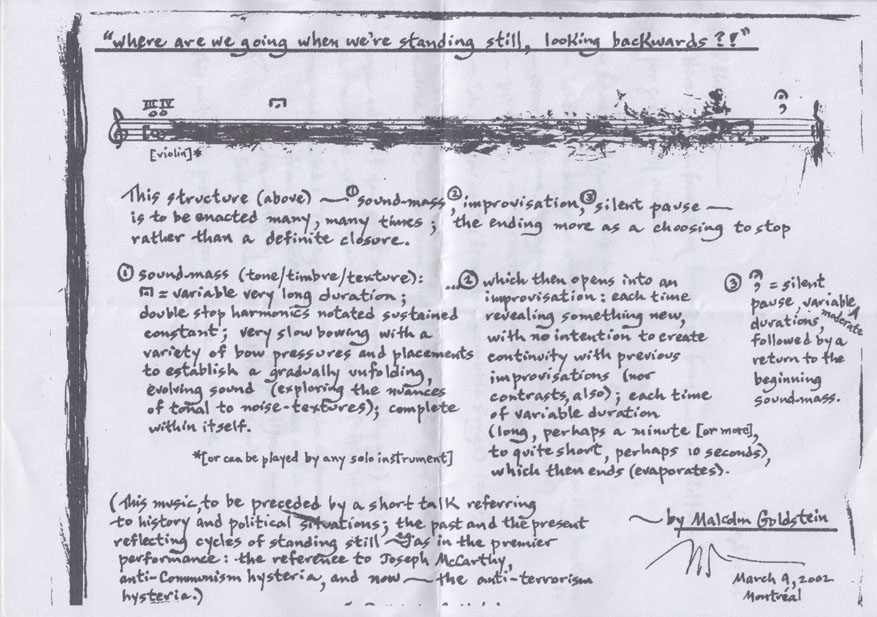 "where are we going when we're standing still, looking backwards?!"
III IV
[violin]*
This structure (above) — ① sound-mass, ② improvisation, ③ silent pause —
is to be enacted many, many times; the ending more as a choosing to stop
rather than a definite closure.
① sound-mass (tone/timbre/texture):
= variable very long duration;
double stop harmonics notated sustained
constant; very slow bowing with a
variety of bow pressures and placements
to establish a gradually unfolding,
evolving sound (exploring the nuances
of tonal to noise-textures); complete
within itself.
...② which then opens into an
improvisation: each time
revealing something new,
with no intention to create
continuity with previous
improvisations (nor
contrasts, also); each time
of variable duration
(long, perhaps a minute [or more],
to quite short, perhaps 10 seconds),
which then ends (evaporates).
③ = silent
pause, variable,
moderate
durations,
followed by a
return to the
beginning
sound-mass.
*[or can be played by any solo instrument]
(This music, to be preceded by a short talk referring
to history and political situations; the past and the present
reflecting cycles of standing still — as in the premier
performance: the reference to Joseph McCarthy,
anti-Communism hysteria, and now — the anti-terrorism
hysteria.)
~ by Malcolm Goldstein
March 9, 2002
Montréal